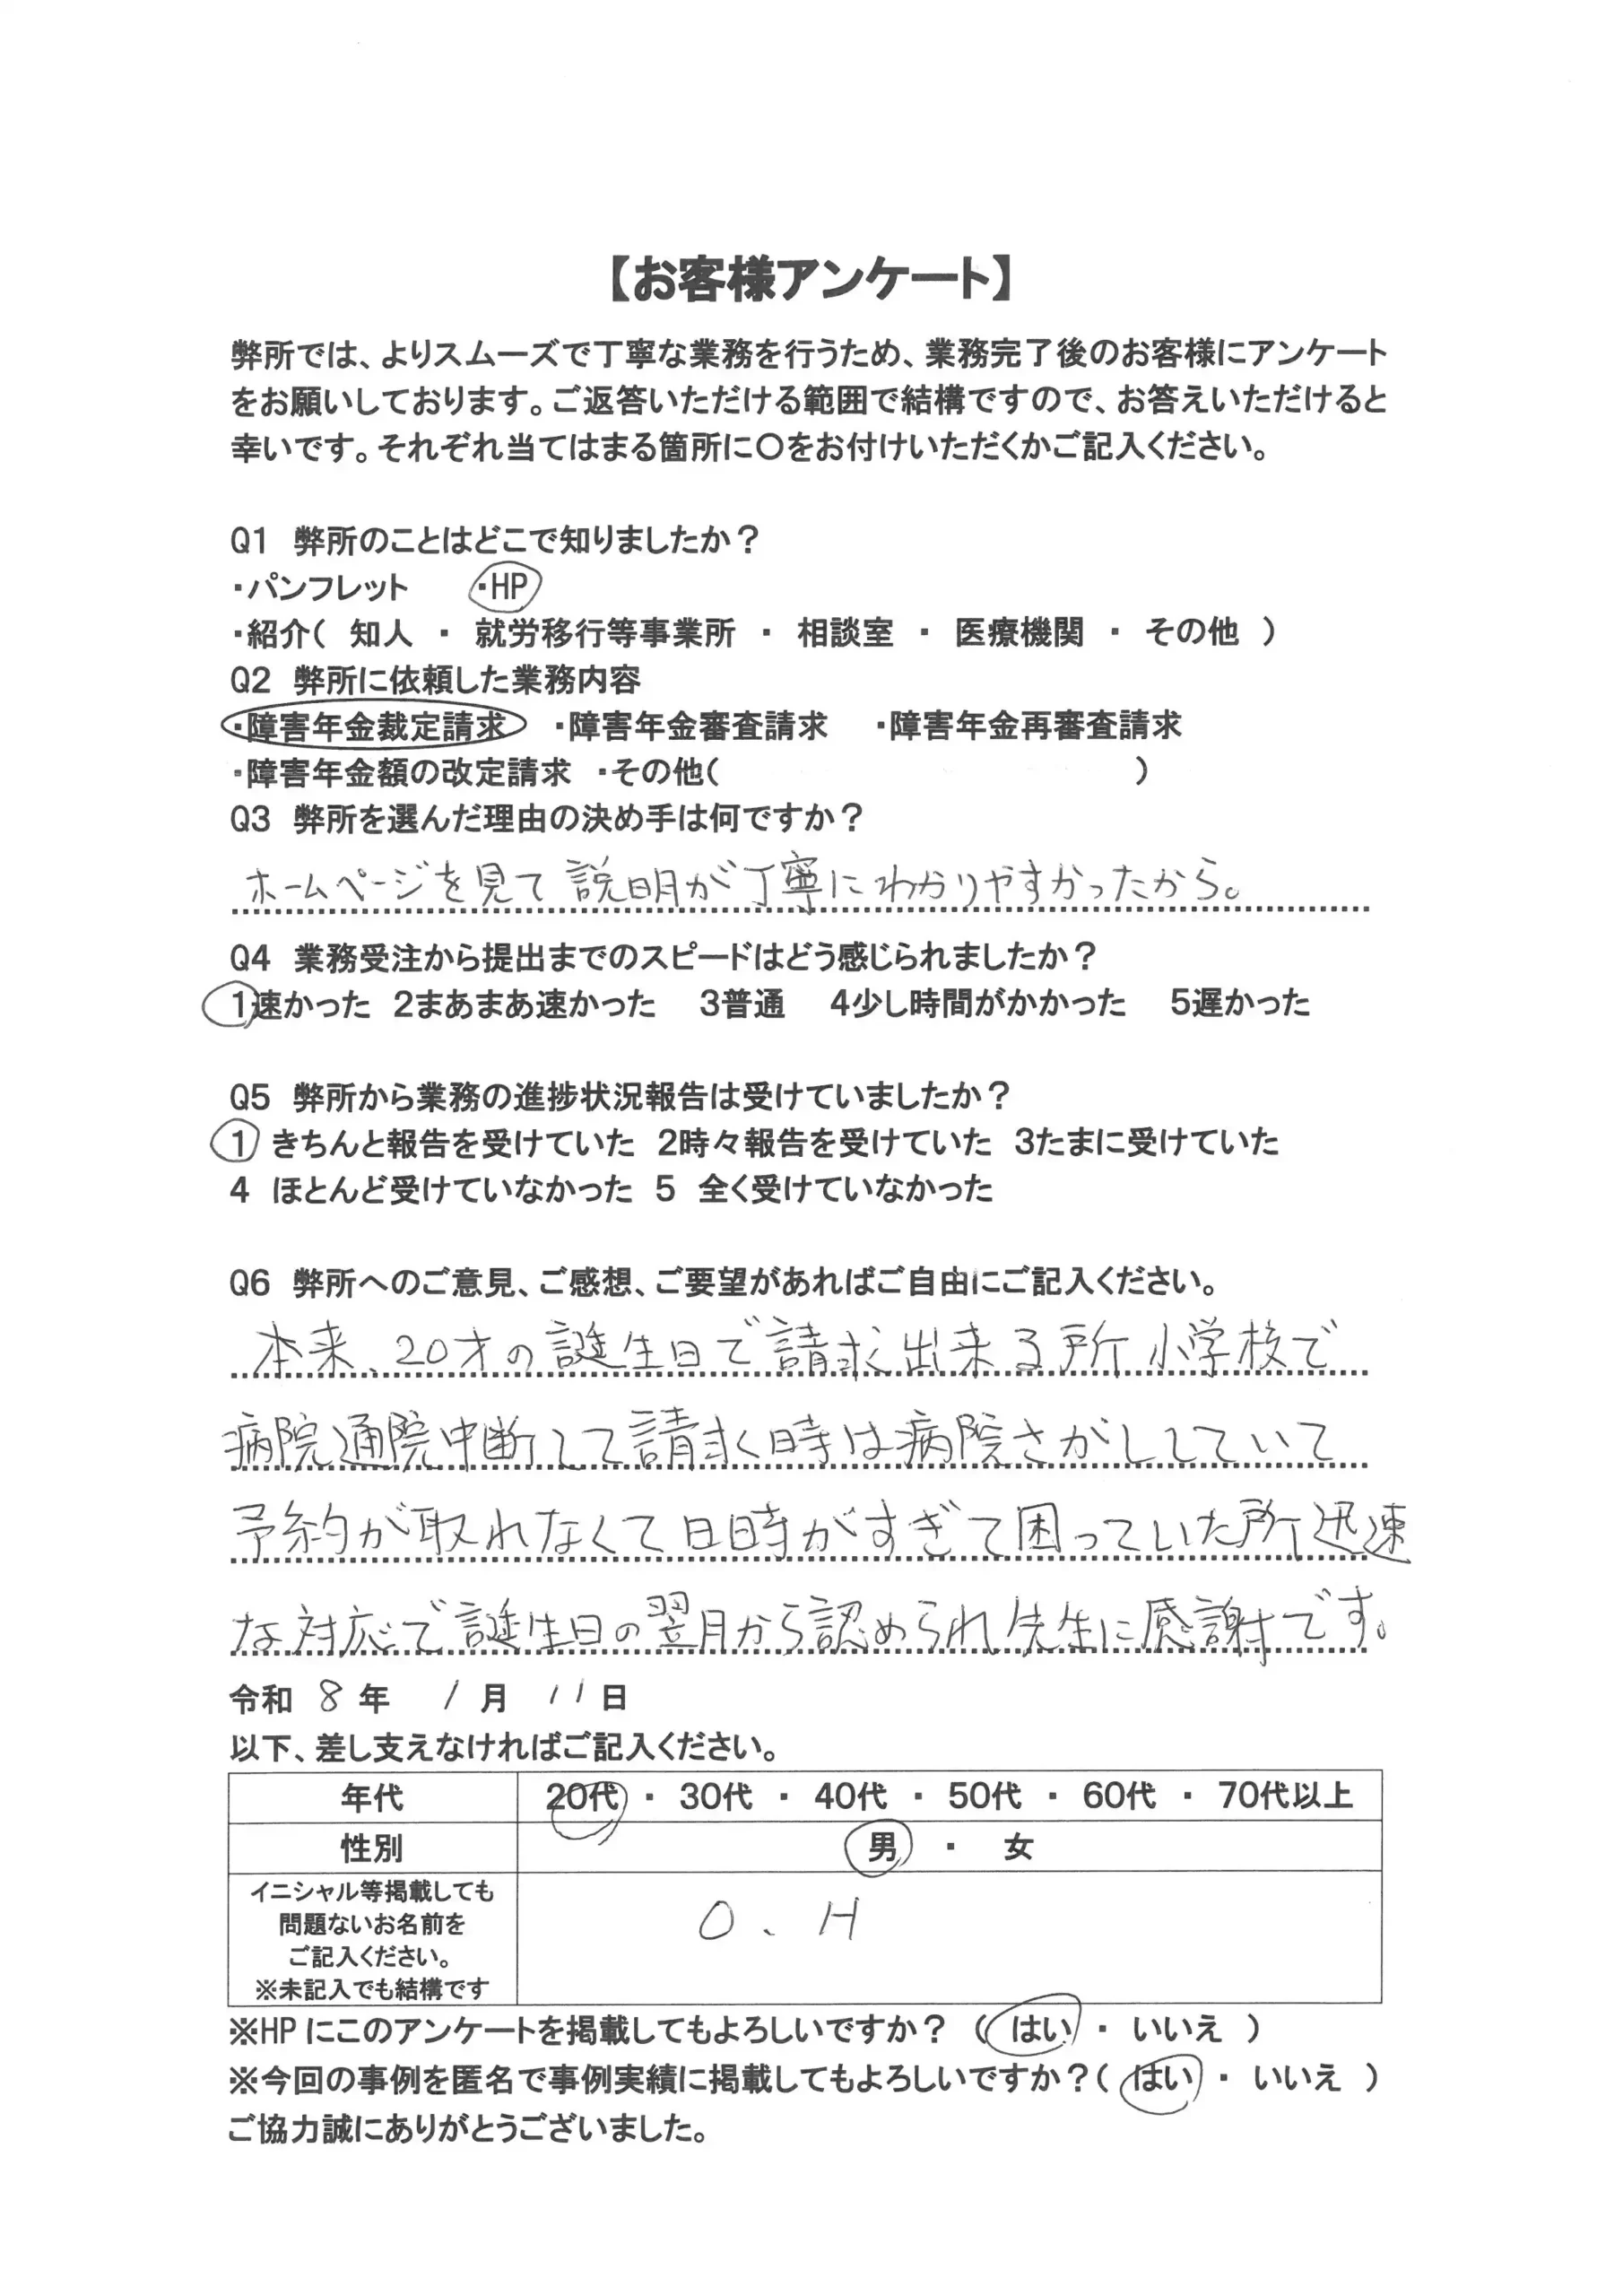 【お客様アンケート】
弊所では、よりスムーズで丁寧な業務を行うため、業務完了後のお客様にアンケート
をお願いしております。ご返答いただける範囲で結構ですので、お答えいただけると
幸いです。それぞれ当てはまる箇所に〇をお付けいただくかご記入ください。
Q1 弊所のことはどこで知りましたか？
・パンフレット ・HP
・紹介（ 知人 ・ 就労移行等事業所 ・ 相談室 ・ 医療機関 ・ その他 ）
Q2 弊所に依頼した業務内容
・障害年金裁定請求 ・障害年金審査請求 ・障害年金再審査請求
・障害年金額の改定請求 ・その他（ ）
Q3 弊所を選んだ理由の決め手は何ですか？
ホームページを見て説明が丁寧にわかりやすかったから。
Q4 業務受注から提出までのスピードはどう感じられましたか？
1速かった 2まあまあ速かった 3普通 4少し時間がかかった 5遅かった
Q5 弊所から業務の進捗状況報告は受けていましたか？
1 きちんと報告を受けていた 2時々報告を受けていた 3たまに受けていた
4 ほとんど受けていなかった 5 全く受けていなかった
Q6 弊所へのご意見、ご感想、ご要望があればご自由にご記入ください。
本来、20才の誕生日で請求出来る所小学校で
病院通院中断して請求時は病院さがししていて
予約が取れなくて日時がすぎて困っていた所迅速
な対応で誕生日の翌月から認められ先生に感謝です。
令和 8 年 1 月 11 日
以下、差し支えなければご記入ください。
年代 20代 ・ 30代 ・ 40代 ・ 50代 ・ 60代 ・ 70代以上
性別 男 ・ 女
イニシャル等掲載しても
問題ないお名前を
ご記入ください。
※未記入でも結構です
O、H
※HPにこのアンケートを掲載してもよろしいですか？（ はい ・ いいえ ）
※今回の事例を匿名で事例実績に掲載してもよろしいですか？（ はい ・ いいえ ）
ご協力誠にありがとうございました。